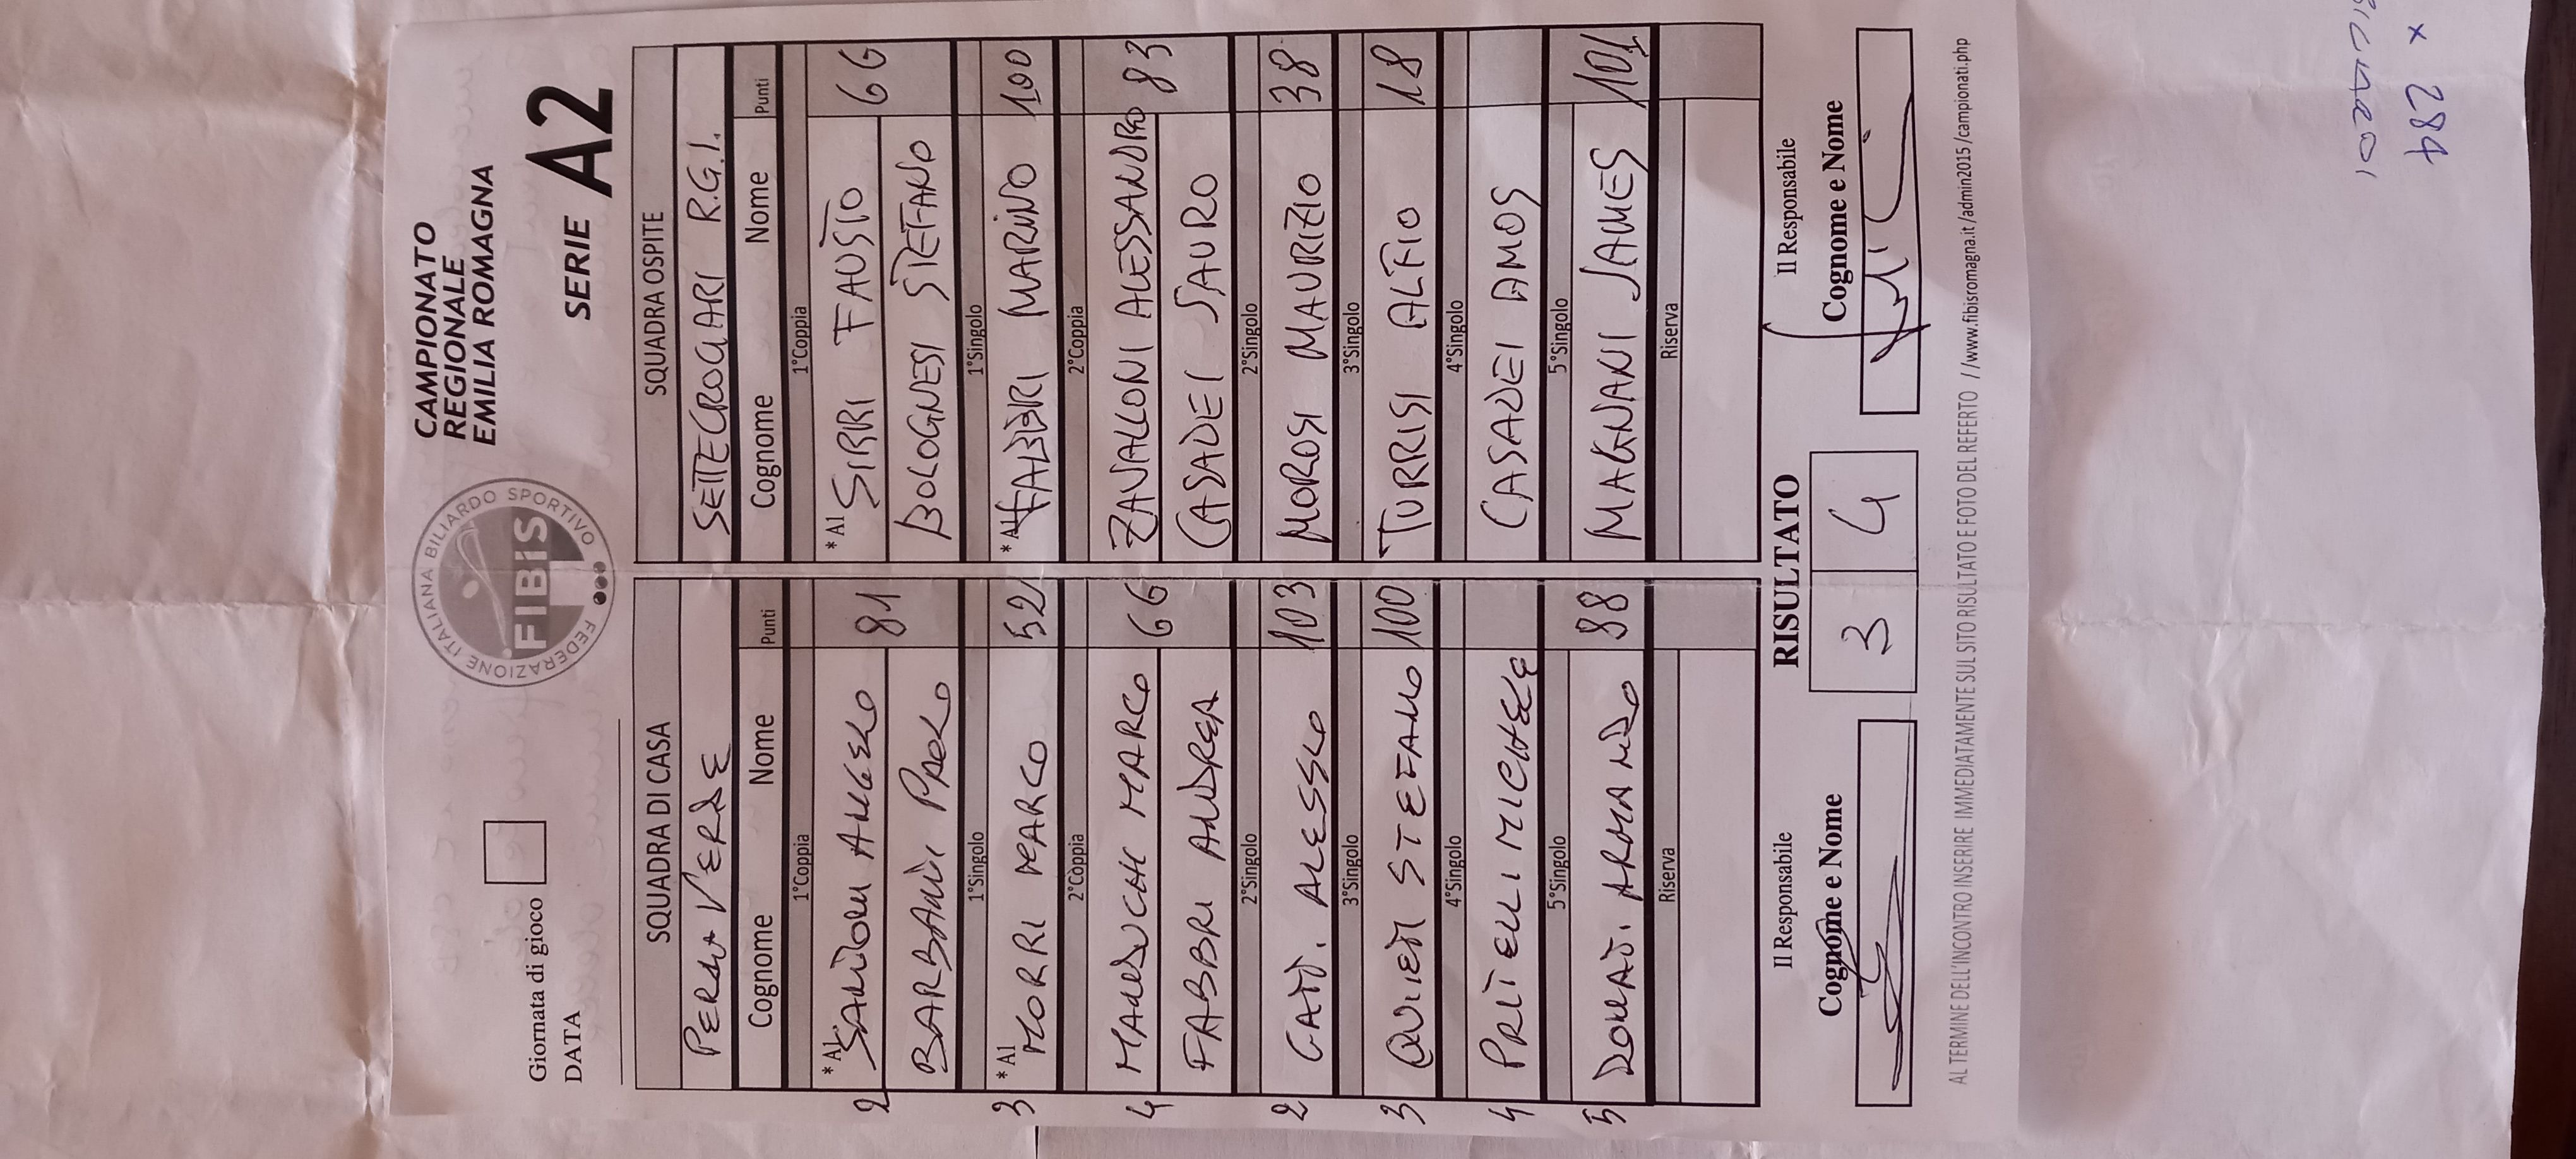 FEDERAZIONE ITALIANA BILIARDO SPORTIVO
FIBIS
CAMPIONATO
REGIONALE
EMILIA ROMAGNA
Giornata di gioco
DATA
SERIE A2
SQUADRA DI CASA SQUADRA OSPITE
PERLA VERDE SETTECROCIARI R.G.I.
Cognome Nome Punti Cognome Nome Punti
1°Coppia 1°Coppia
2 *A1 ANGELO 81 *A1 SIRRI FAUSTO 66
BARBANTI PAOLO BOLOGNESI STEFANO
1°Singolo 1°Singolo
3 *A1 MORRI MARCO 52 *A1 FABBRI MARINO 100
2°Coppia 2°Coppia
4 MARCO 66 ZAVALLONI ALESSANDRO 83
FABBRI ANDREA CASADEI SAURO
2°Singolo 2°Singolo
2 GATTI ALESSIO 103 MOROSI MAURIZIO 38
3°Singolo 3°Singolo
3 QUIETI STEFANO 100 TURRISI ALFIO 18
4°Singolo 4°Singolo
4 PRITELLI MICHELE CASADEI AMOS
5°Singolo 5°Singolo
5 DONATI ARMANDO 88 MAGNANI JAMES 101
Riserva Riserva
Il Responsabile RISULTATO Il Responsabile
Cognome e Nome 3 4 Cognome e Nome
AL TERMINE DELL'INCONTRO INSERIRE IMMEDIATAMENTE SUL SITO RISULTATO E FOTO DEL REFERTO //www.fibisromagna.it/admin2015/campionati.php